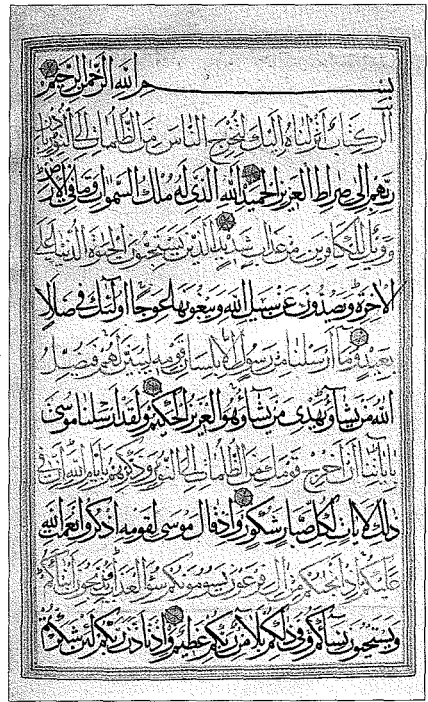 بسم الله الرحمن الرحيم
الر كتاب انزلناه اليك لتخرج الناس من الظلمات الى النور باذن
ربهم الى صراط العزيز الحميد الله الذى له ما فى السموات وما فى الارض
وويل للكافرين من عذاب شديد الذين يستحبون الحيوة الدنيا على
الاخرة ويصدون عن سبيل الله ويبغونها عوجا اولئك فى ضلال
بعيد وما ارسلنا من رسول الا بلسان قومه ليبين لهم فيضل
الله من يشاء ويهدى من يشاء وهو العزيز الحكيم ولقد ارسلنا موسى
باياتنا ان اخرج قومك من الظلمات الى النور وذكرهم بايام الله ان فى
ذلك لايات لكل صبار شكور واذ قال موسى لقومه اذكروا نعمة الله
عليكم اذ انجيكم من ال فرعون يسومونكم سوء العذاب ويذبحون ابناءكم
ويستحيون نساءكم وفى ذلكم بلاء من ربكم عظيم واذ تاذن ربكم لئن شكرتم